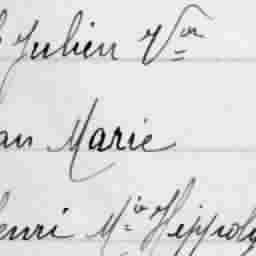 Julien Vor
an Marie
enri Mie Hippoly